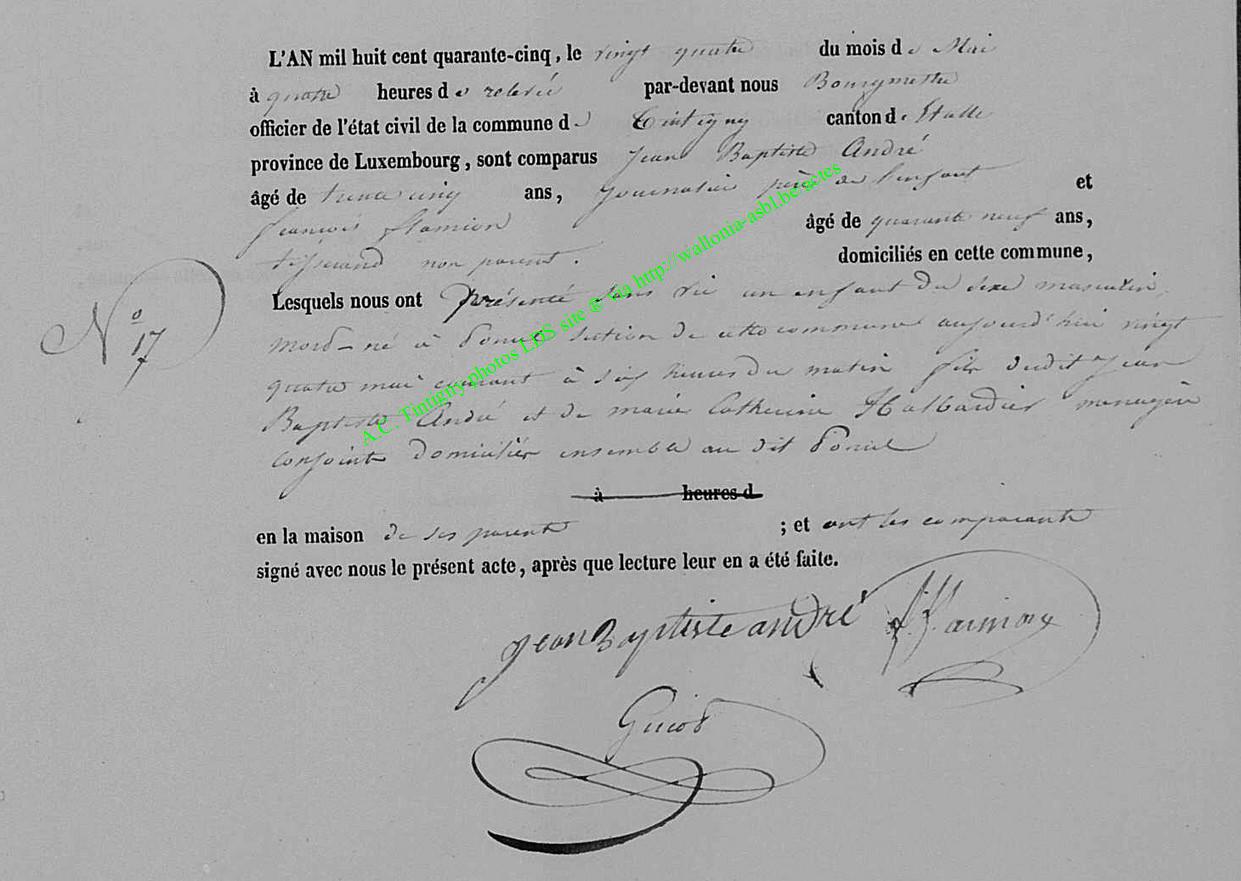 L'AN mil huit cent quarante-cinq, le vingt quatre du mois de Mai
à quatre heures de relevée par-devant nous Bourgmestre
officier de l'état civil de la commune de Tintigny canton de Etalle
province de Luxembourg, sont comparus Jean Baptiste André
âgé de trente cinq ans, journalier père de l'enfant et
françois flamion âgé de quarante neuf ans,
tisserand non parent. domiciliés en cette commune,
Lesquels nous ont présenté sans vie un enfant du sexe masculin,
N° 17
mord-né à Poncel section de cette commune aujourd'hui vingt
quatre mai courant à six heures du matin fils dudit Jean
Baptiste André et de marie Catherine Halbardier menagère
conjoints domiciliés ensemble au dit Poncel
à heures d
en la maison de ses parents ; et ont les comparants
signé avec nous le présent acte, après que lecture leur en a été faite.
Jean Baptiste andré
A.C. Tintigny photos LDS site ® via http://wallonia-asbl.be/actes